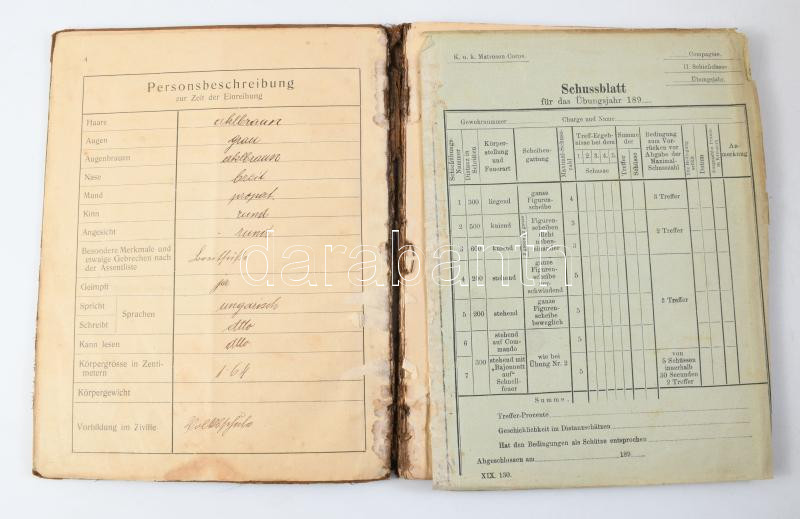 4
Personsbeschreibung
zur Zeit der Einreihung
Haare
Augen grau
Augenbrauen
Nase breit
Mund propot.
Kinn rund
Angesicht " rund
Besondere Merkmale und
etwaige Gebrechen nach
der Assentliste
Geimpft ja
Spricht Sprachen ungarisch
Schreibt dtto
Kann lesen dtto
Körpergrösse in Zenti-
metern 1·64
Körpergewicht
Vorbildung im Zivile Volksschule
K. u. k. Matrosen-Corps.
Compagnie.
II. Schießclasse
Übungsjahr.
Schussblatt
für das Übungsjahr 189
Gewehrnummer Charge und Name
Distanz in Schritten
Körper-
stellung
und
Feuerart
Scheiben-
gattung
Maximal-Schuss-
zahl
Treff-Ergeb-
nisse bei dem
1. 2. 3. 4. 5.
Schusse
Summe
der
Treffer
Schüsse
Bedingung
zum Vor-
rücken vor
Abgabe der
Maximal-
Schusszahl
Datum
An-
merkung
1 300 liegend ganze
Figuren-
scheibe 4 3 Treffer
2 500 kniend Figuren-
scheiben
dicht
neben-
einander 2 Treffer
3 600 kniend
4 200 stehend ganze
Figuren-
scheibe
ver-
schwindend 5
5 200 stehend ganze
Figuren-
scheibe
beweglich 5 2 Treffer
6 stehend
auf Com-
mando 5
7 300 stehend mit
"Bajonnett
auf"
Schnell-
feuer wie bei
Übung Nr. 2 5 von
5 Schüssen
innerhalb
30 Secunden
2 Treffer
Summe
Treffer-Procente
Geschicklichkeit im Distanzschätzen
Hat den Bedingungen als Schütze entsprochen
Abgeschlossen am 189
XIX. 130.
darabanth